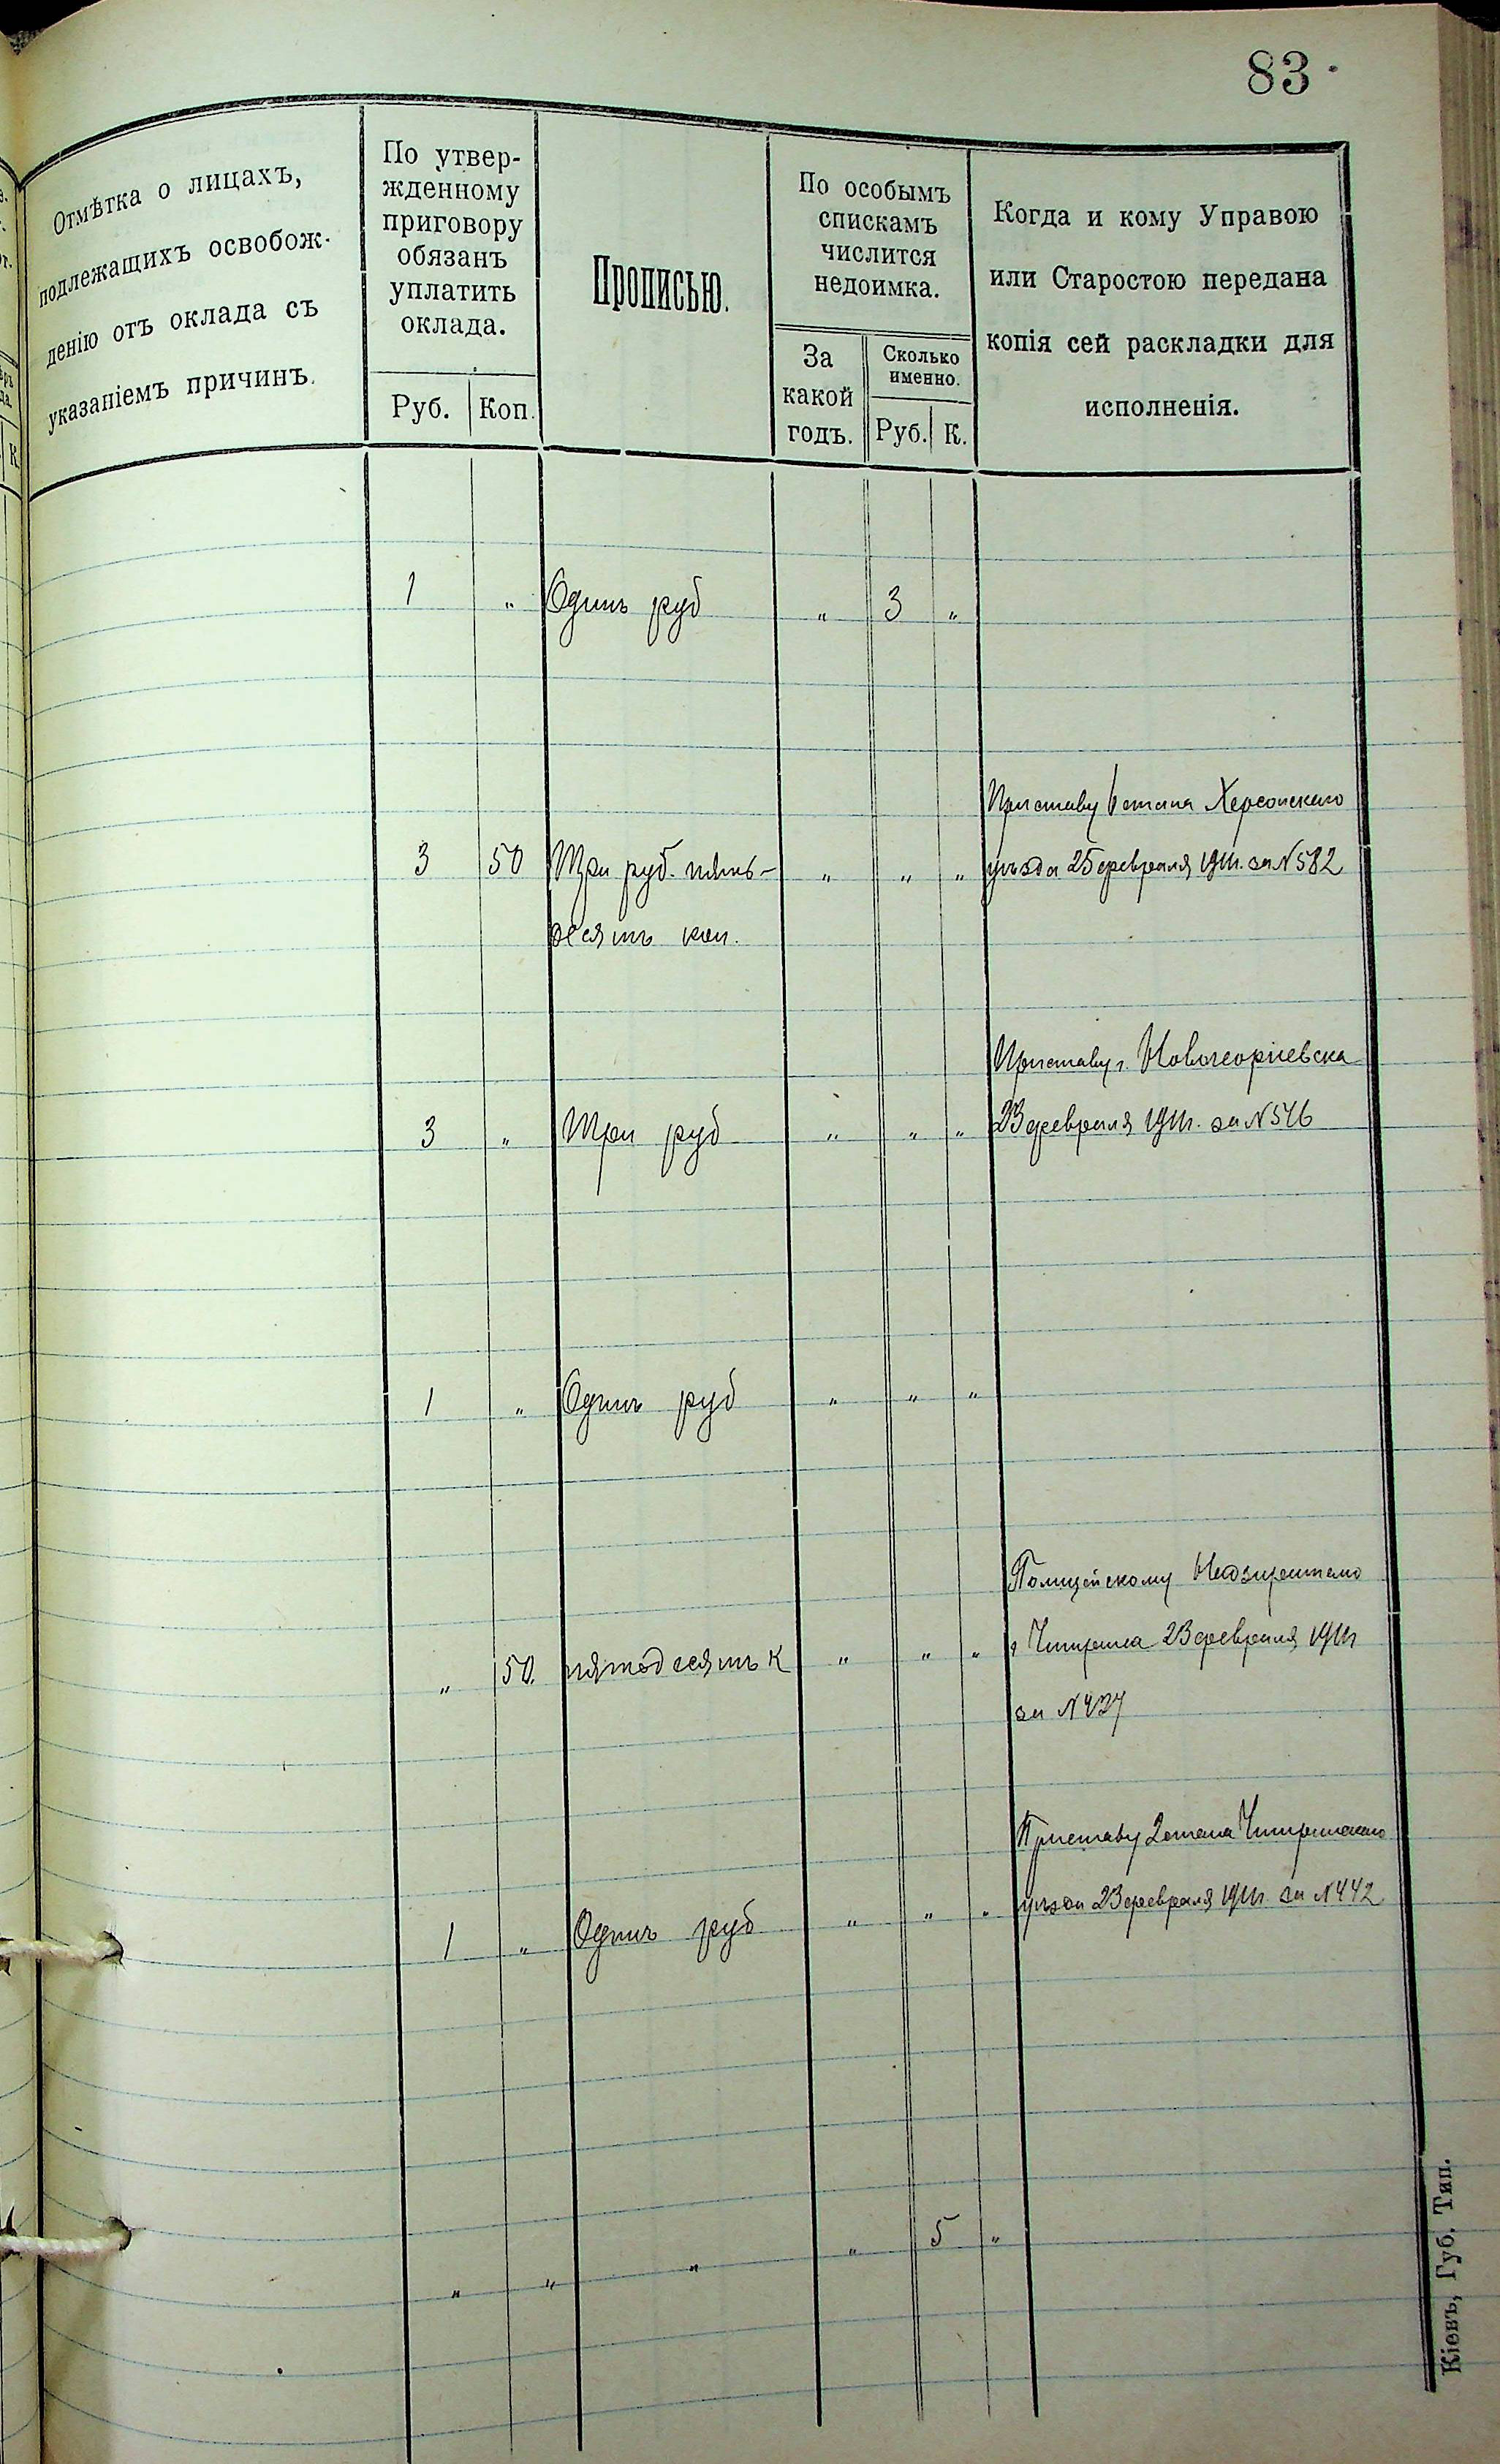 83
Отмѣтка о лицахъ,
подлежащихъ освобож-
денію отъ оклада съ
указаніемъ причинъ.
По утвер-
жденному
приговору
обязанъ
уплатить
оклада.
Руб. Коп.
Прописью.
По особымъ
спискамъ
числится
недоимка.
За
какой
годъ.
Сколько
именно.
Руб. К.
Когда и кому Управою
или Старостою передана
копія сей раскладки для
исполненія.
1 " Одинъ руб " 3 "
Приставу стана Херсонскаго
3 50 Три руб. пять- " " " уѣзда 25 февраля 1911г. за №582
десятъ коп.
Приставу г. Новогеоргіевска
3 " Три руб " " " 23 февраля 1911г. за №546
1 " Одинъ руб " " "
Полицейскому Надзирателю
" 50. пятьдесятъ К " " " г Чигирина 23 февраля 1911г
за №437
Приставу 2 стана Чигиринскаго
1 " Одинъ руб " " " уѣзда 23 февраля 1911г. за №442
" " " " 5 "
Кіевъ, Губ. Тип.